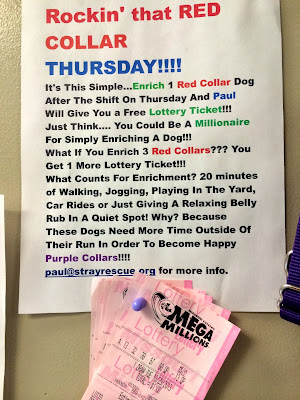 Rockin' that RED
COLLAR
THURSDAY!!!!
It's This Simple...Enrich 1 Red Collar Dog
After The Shift On Thursday And Paul
Will Give You a Free Lottery Ticket!!!
Just Think.... You Could Be A Millionaire
For Simply Enriching A Dog!!!
What If You Enrich 3 Red Collars??? You
Get 1 More Lottery Ticket!!!
What Counts For Enrichment? 20 minutes
of Walking, Jogging, Playing In The Yard,
Car Rides or Just Giving A Relaxing Belly
Rub In A Quiet Spot! Why? Because
These Dogs Need More Time Outside Of
Their Run In Order To Become Happy
Purple Collars!!!!
paul@strayrescue.org for more info.
Lottery
MEGA
MILLIONS